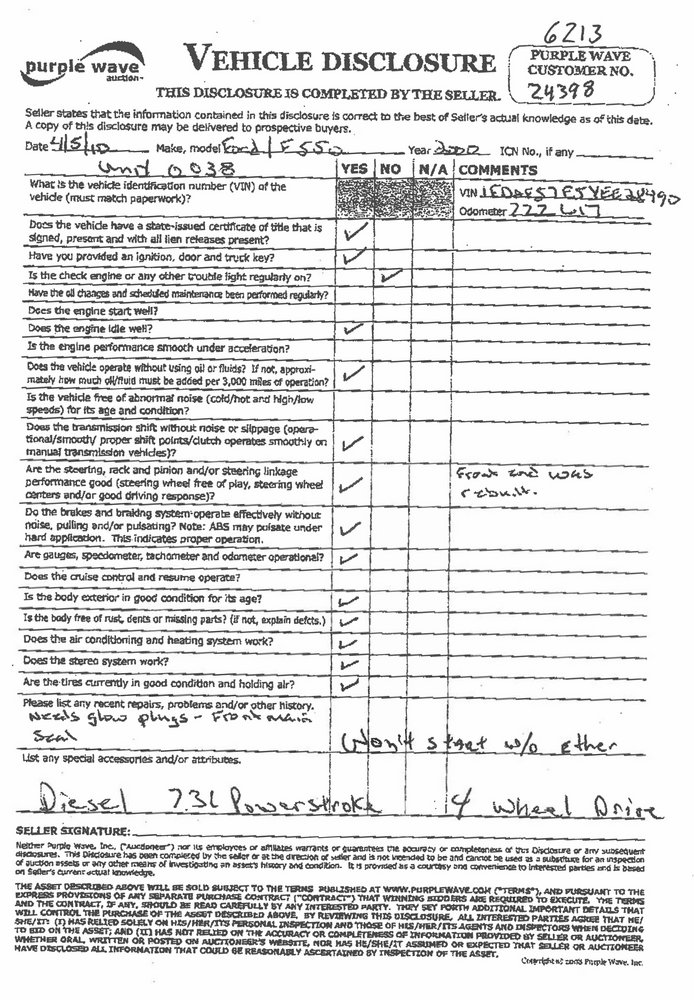 6213
purple wave
auction™
VEHICLE DISCLOSURE
PURPLE WAVE
CUSTOMER NO.
24398
THIS DISCLOSURE IS COMPLETED BY THE SELLER.
Seller states that the information contained in this disclosure is correct to the best of Seller's actual knowledge as of this date.
A copy of this disclosure may be delivered to prospective buyers.
Date 4/5/10 Make, model Ford / F550 Year 2000 ICN No., if any
Unit 0038 YES NO N/A COMMENTS
What is the vehicle identification number (VIN) of the
vehicle (must match paperwork)?
VIN
Odometer 222617
Does the vehicle have a state-issued certificate of title that is
signed, present and with all lien releases present?
Have you provided an ignition, door and truck key?
Is the check engine or any other trouble light regularly on?
Have the oil changes and scheduled maintenance been performed regularly?
Does the engine start well?
Does the engine idle well?
Is the engine performance smooth under acceleration?
Does the vehicle operate without using oil or fluids? If not, approxi-
mately how much oil/fluid must be added per 3,000 miles of operation?
Is the vehicle free of abnormal noise (cold/hot and high/low
speeds) for its age and condition?
Does the transmission shift without noise or slippage (opera-
tional/smooth/ proper shift points/clutch operates smoothly on
manual transmission vehicles)?
Are the steering, rack and pinion and/or steering linkage
performance good (steering wheel free of play, steering wheel
centers and/or good driving response)?
Front end was
rebuilt.
Do the brakes and braking system operate effectively without
noise, pulling and/or pulsating? Note: ABS may pulsate under
hard application. This indicates proper operation.
Are gauges, speedometer, tachometer and odometer operational?
Does the cruise control and resume operate?
Is the body exterior in good condition for its age?
Is the body free of rust, dents or missing parts? (if not, explain defcts.)
Does the air conditioning and heating system work?
Does the stereo system work?
Are the tires currently in good condition and holding air?
Please list any recent repairs, problems and/or other history.
Needs glow plugs - Front main
Seal
Won't start w/o ether
List any special accessories and/or attributes.
Diesel 7.3L Powerstroke 4 Wheel Drive
SELLER SIGNATURE:
Neither Purple Wave, Inc. ("Auctioneer") nor its employees or affiliates warrants or guarantees the accuracy or completeness of this Disclosure or any subsequent
disclosures. This Disclosure has been completed by the seller or at the direction of seller and is not intended to be and cannot be used as a substitute for an inspection
of auction assets or any other means of investigating an asset's history and condition. It is provided as a courtesy and convenience to interested parties and is based
on Seller's current actual knowledge.
THE ASSET DESCRIBED ABOVE WILL BE SOLD SUBJECT TO THE TERMS PUBLISHED AT WWW.PURPLEWAVE.COM ("TERMS"), AND PURSUANT TO THE
EXPRESS PROVISIONS OF ANY SEPARATE PURCHASE CONTRACT ("CONTRACT") THAT WINNING BIDDERS ARE REQUIRED TO EXECUTE. THE TERMS
AND THE CONTRACT, IF ANY, SHOULD BE READ CAREFULLY BY ANY INTERESTED PARTY. THEY SET FORTH ADDITIONAL IMPORTANT DETAILS THAT
WILL CONTROL THE PURCHASE OF THE ASSET DESCRIBED ABOVE. BY REVIEWING THIS DISCLOSURE, ALL INTERESTED PARTIES AGREE THAT HE/
SHE/IT: (I) HAS RELIED SOLELY ON HIS/HER/ITS PERSONAL INSPECTION AND THOSE OF HIS/HER/ITS AGENTS AND INSPECTORS WHEN DECIDING
TO BID ON THE ASSET; AND (II) HAS NOT RELIED ON THE ACCURACY OR COMPLETENESS OF INFORMATION PROVIDED BY SELLER OR AUCTIONEER,
WHETHER ORAL, WRITTEN OR POSTED ON AUCTIONEER'S WEBSITE, NOR HAS HE/SHE/IT ASSUMED OR EXPECTED THAT SELLER OR AUCTIONEER
HAVE DISCLOSED ALL INFORMATION THAT COULD BE REASONABLY ASCERTAINED BY INSPECTION OF THE ASSET.
Copyright (c) 2008 Purple Wave, Inc.